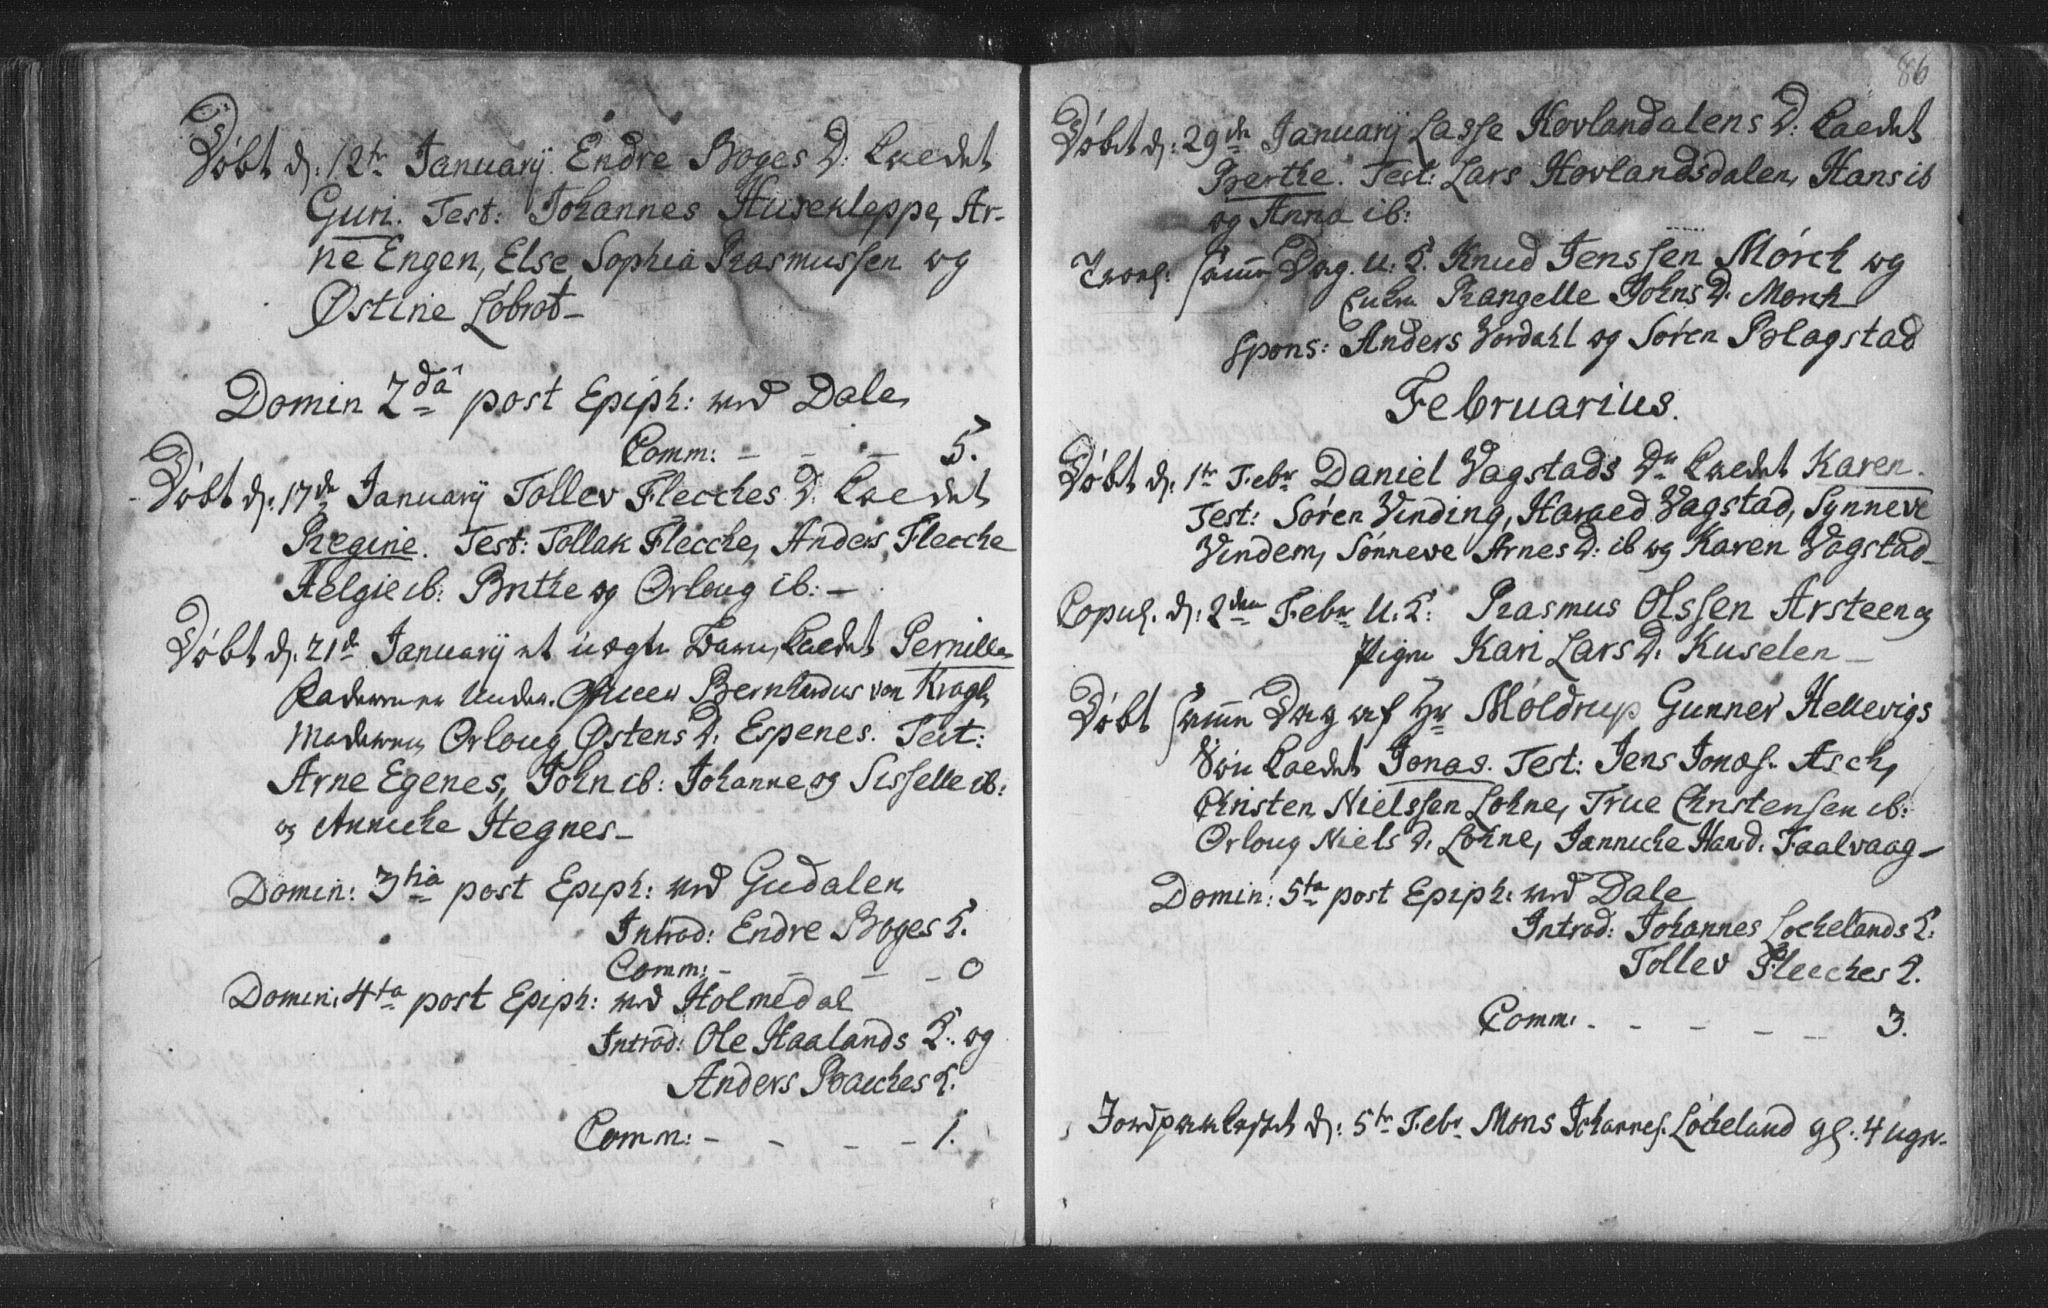 Døbt d: 12te January Endre Boges D: kaldet
Guri. Test: Johannes Husekleppe, Ar-
ne Engen, Else Sophia Rasmussen og
Østine Løbrot
Domin 2da post Epiph: ved Dale
Comm: - - - 5.
Døbt d: 17de January Tollev Flecches D: kaldet
Regine. Test: Tollak Flecche, Anders Flecche
Helgie ib: Brithe og Orloug ib: -
Døbt d. 21de January et uægte Barn, kaldet Pernille
Faderen er Under. Officeer Bernhardus von Kragh
Moderen Orloug Østens D: Espenes. Test:
Arne Egenes, John ib: Johanne og Sisselle ib:
og Anniche Hegnes
Domin: 3tia post Epiph: ved Gudalen
Introd: Endre Boges K.
Comm: - - - 0
Domin: 4ta post Epiph: ved Holmedal
Introd: Ole Haalands K. og
Anders Bacches K.
Comm: - - - - 1.
86
Døbt d: 29de January Lasse Hovlandalens D: kaldet
Berthe. Test: Lars Hovlandsdalen, Hans ib
og Anna ib:
Trool: samme Dag U. K. Knud Jenssen Mørch og
Enken Rangelle Johns D. Mørch
Spons: Anders Vordahl og Søren Blagstad
Februarius.
Døbt d: 1te Febr Daniel Vagstads Dr kaldet Karen.
Test: Søren Vinding, Harald Vagstad, Synneve
Vindem, Sønneve Arnes D: ib og Karen Vagstad
Copul. d: 2den Febr U. K: Rasmus Olssen Arsteen og
Pigen Kari Lars D. Kuselen
Døbt samme Dag af Hr Moldrup Gunner Hellevigs
Søn kaldet Jonas. Test: Jens Jonæs. Asch,
Christen Nielssen Lohne, True Christensen ib:
Orloug Niels D. Lohne, Jannicke Hansd. Faalvaag
Domin: 5ta post Epiph: ved Dale
Introd: Johannes Lochelands K:
Tollev Flecches K.
Comm: - - - - - 3.
Jordpaakastet d: 5te Febr Mons Johannes. Løcheland gl: 4 uger